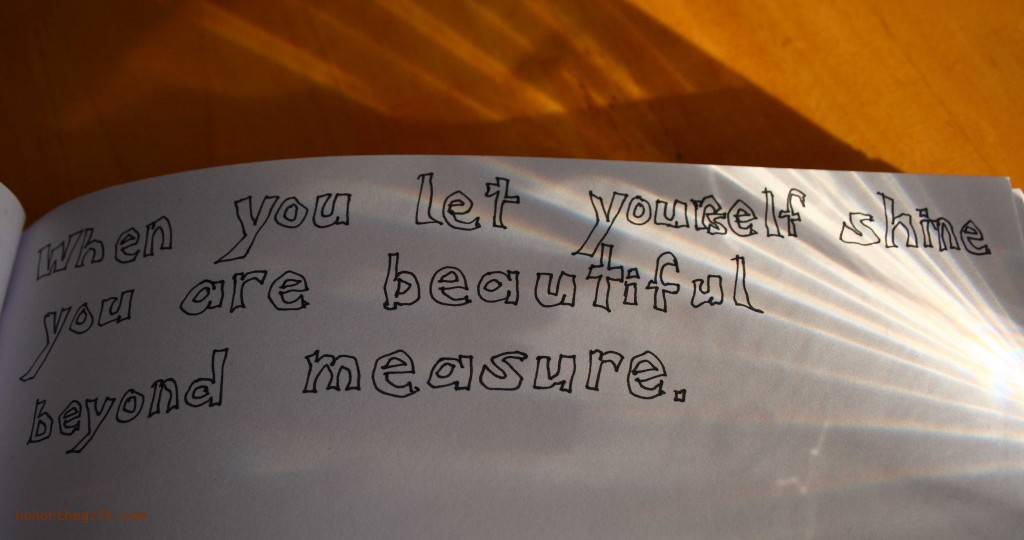 When you let yourself shine
you are beautiful
beyond measure.
honorthegift.com